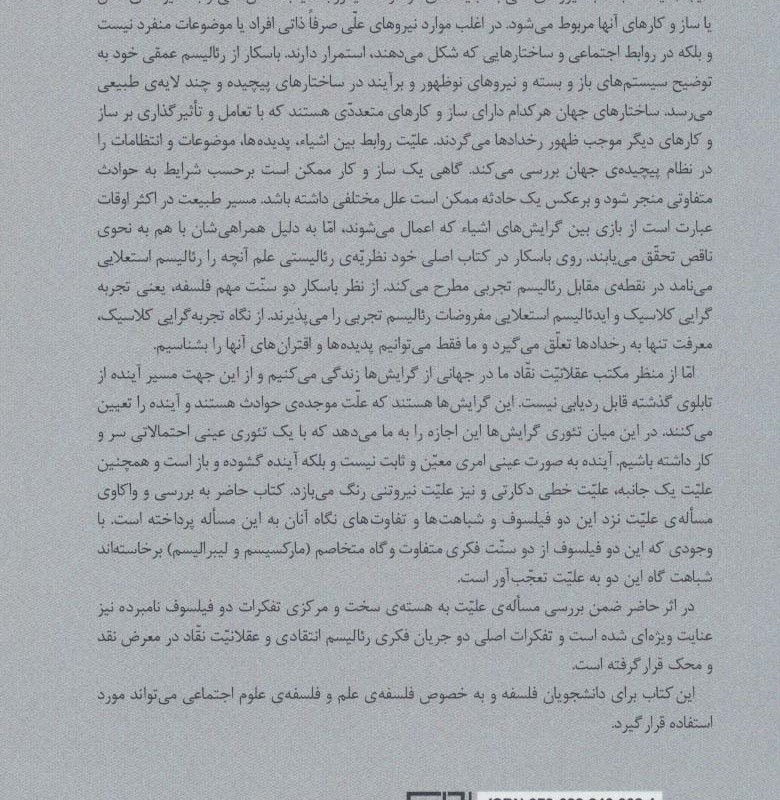 یا ساز و کارهای آنها مربوط می‌شود. در اغلب موارد نیروهای علّی صرفاً ذاتی افراد یا موضوعات منفرد نیست
و بلکه در روابط اجتماعی و ساختارهایی که شکل می‌دهند، استمرار دارند. باسکار از رئالیسم عمقی خود به
توضیح سیستم‌های باز و بسته و نیروهای نوظهور و برآیند در ساختارهای پیچیده و چند لایه‌ی طبیعی
می‌رسد. ساختارهای جهان هرکدام دارای ساز و کارهای متعددّی هستند که با تعامل و تأثیرگذاری بر ساز
و کارهای دیگر موجب ظهور رخدادها می‌گردند. علیّت روابط بین اشیاء، پدیده‌ها، موضوعات و انتظامات را
در نظام پیچیده‌ی جهان بررسی می‌کند. گاهی یک ساز و کار ممکن است برحسب شرایط به حوادث
متفاوتی منجر شود و برعکس یک حادثه ممکن است علل مختلفی داشته باشد. مسیر طبیعت در اکثر اوقات
عبارت است از بازی بین گرایش‌های اشیاء که اعمال می‌شوند، امّا به دلیل همراهی‌شان با هم به نحوی
ناقص تحقّق می‌یابند. روی باسکار در کتاب اصلی خود نظریّه‌ی رئالیستی علم آنچه را رئالیسم استعلایی
می‌نامد در نقطه‌ی مقابل رئالیسم تجربی مطرح می‌کند. از نظر باسکار دو سنّت مهم فلسفه، یعنی تجربه
گرایی کلاسیک و ایدئالیسم استعلایی مفروضات رئالیسم تجربی را می‌پذیرند. از نگاه تجربه‌گرایی کلاسیک،
معرفت تنها به رخدادها تعلّق می‌گیرد و ما فقط می‌توانیم پدیده‌ها و اقتران‌های آنها را بشناسیم.
امّا از منظر مکتب عقلانیّت نقّاد ما در جهانی از گرایش‌ها زندگی می‌کنیم و از این جهت مسیر آینده از
تابلوی گذشته قابل ردیابی نیست. این گرایش‌ها هستند که علّت موجده‌ی حوادث هستند و آینده را تعیین
می‌کنند. در این میان تئوری گرایش‌ها این اجازه را به ما می‌دهد که با یک تئوری عینی احتمالاتی سر و
کار داشته باشیم. آینده به صورت عینی امری معیّن و ثابت نیست و بلکه آینده گشوده و باز است و همچنین
علیّت یک جانبه، علیّت خطی دکارتی و نیز علیّت نیروتنی رنگ می‌بازد. کتاب حاضر به بررسی و واکاوی
مسأله‌ی علیّت نزد این دو فیلسوف و شباهت‌ها و تفاوت‌های نگاه آنان به این مسأله پرداخته است. با
وجودی که این دو فیلسوف از دو سنّت فکری متفاوت و گاه متخاصم (مارکسیسم و لیبرالیسم) برخاسته‌اند
شباهت گاه این دو به علیّت تعجّب‌آور است.
در اثر حاضر ضمن بررسی مسأله‌ی علیّت به هسته‌ی سخت و مرکزی تفکرات دو فیلسوف نامبرده نیز
عنایت ویژه‌ای شده است و تفکرات اصلی دو جریان فکری رئالیسم انتقادی و عقلانیّت نقّاد در معرض نقد
و محک قرار گرفته است.
این کتاب برای دانشجویان فلسفه و به خصوص فلسفه‌ی علم و فلسفه‌ی علوم اجتماعی می‌تواند مورد
استفاده قرار گیرد.